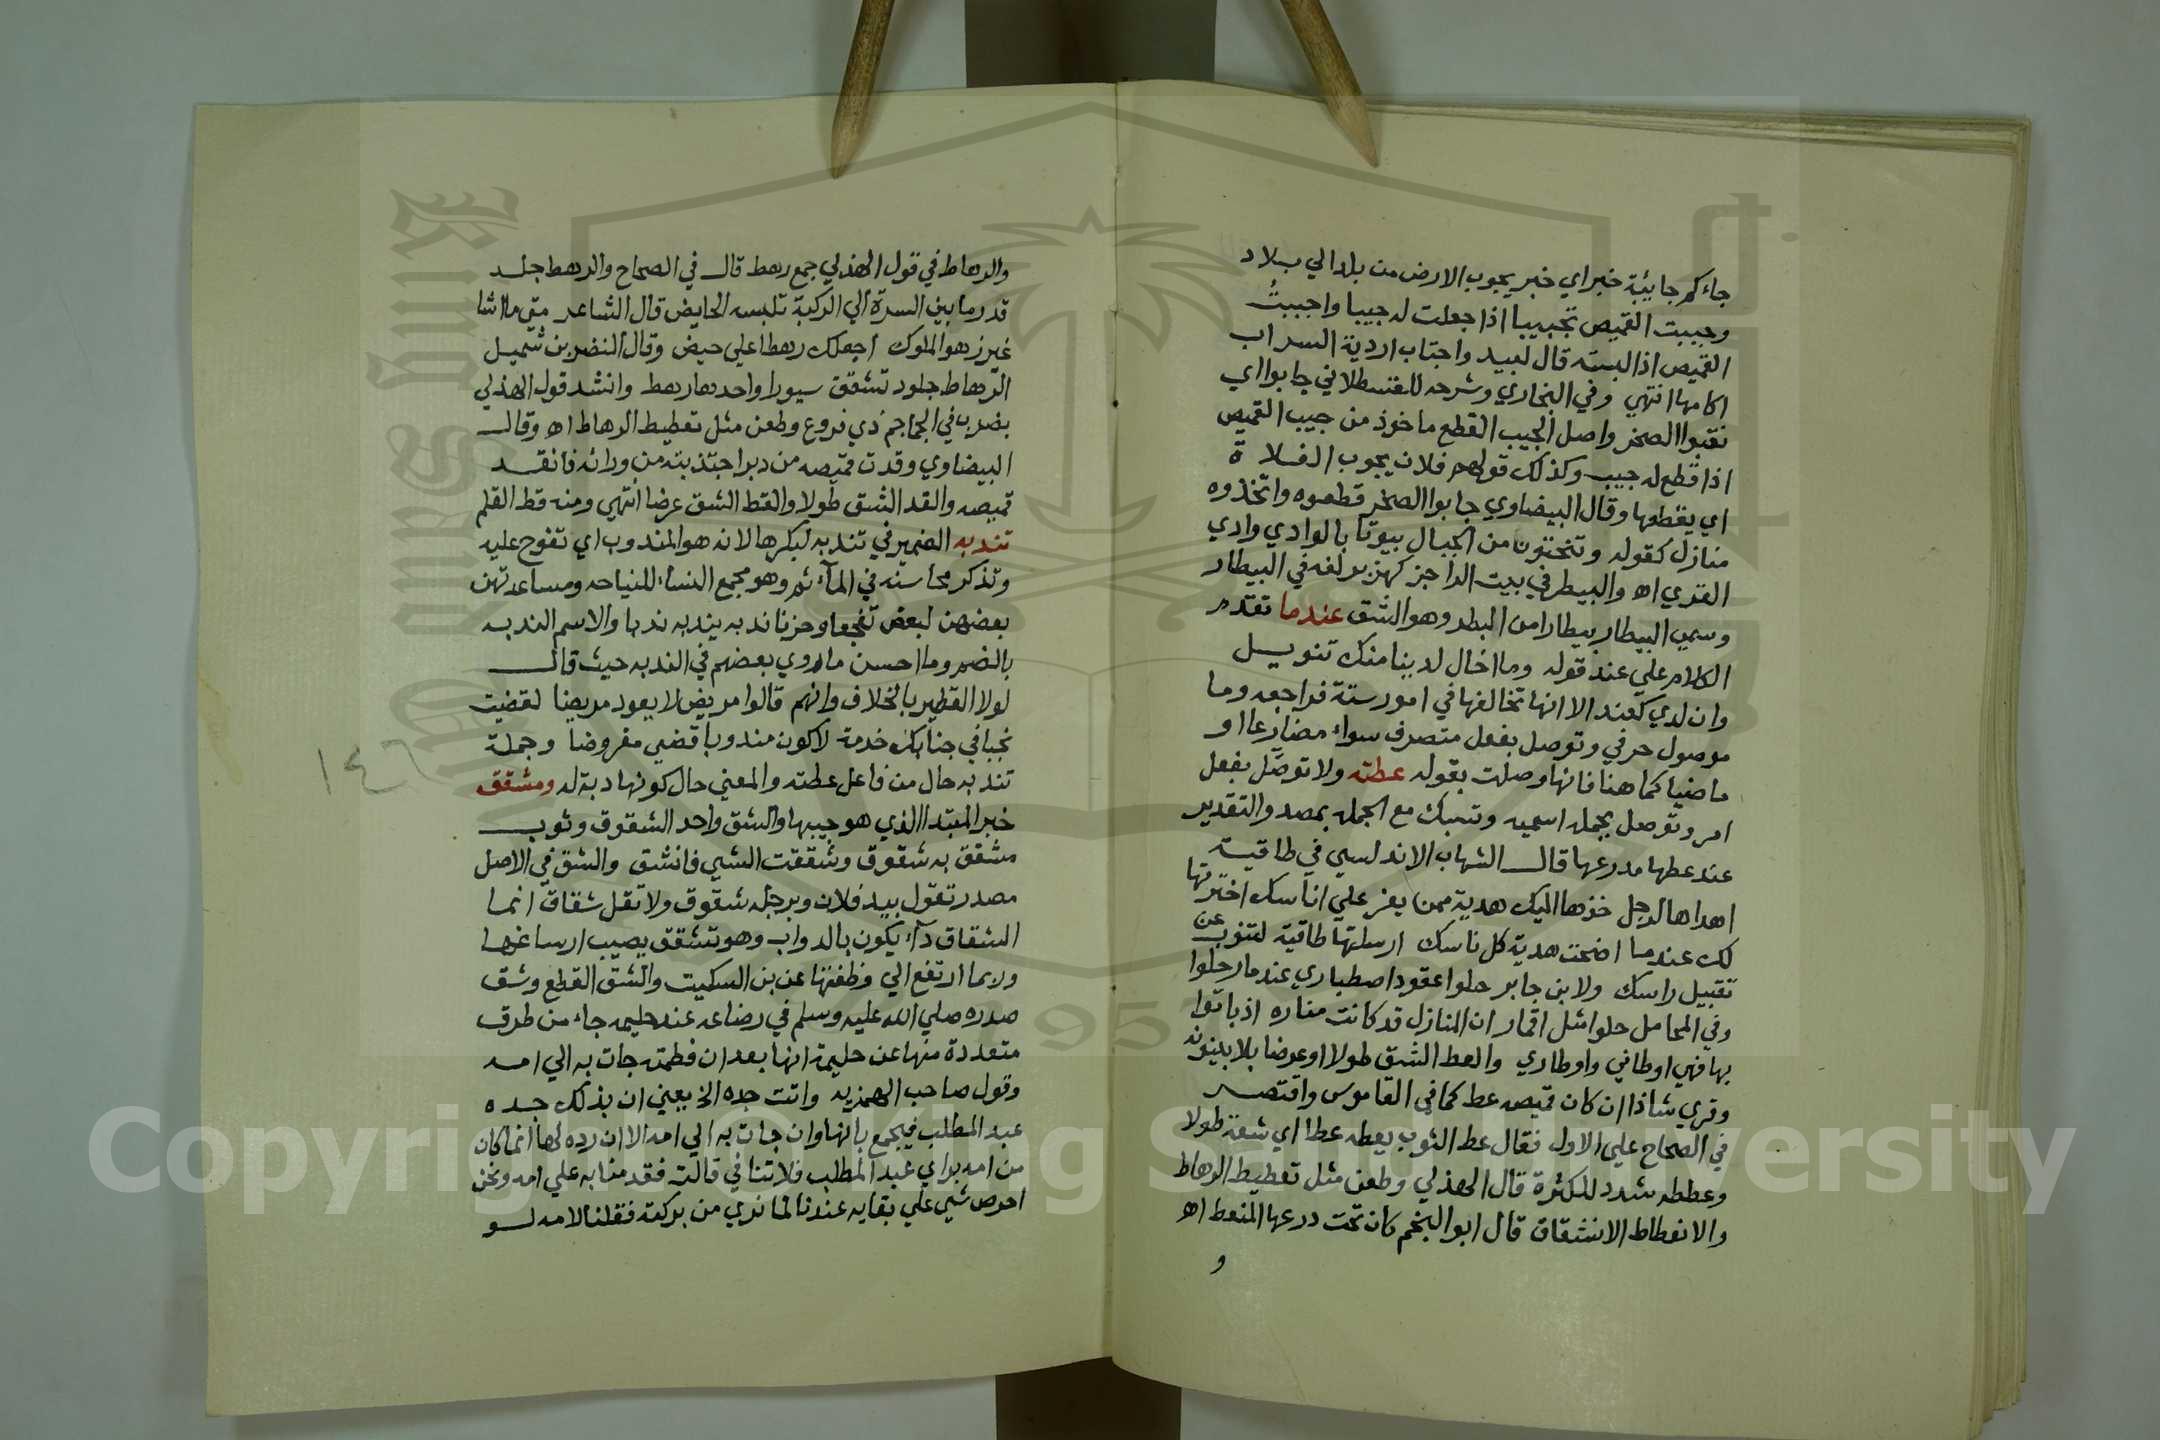 جاءكم جايبة خبر اي خبر يجوب الارض من بلد الي بلاد
وجيبت القميص تجبيبا اذا جعلت له جيبا واجببتُ
القميص اذا لبسته قال لبيد واجتاب اردية السراب
اكامها انتهي وفي البخاري وشرحه للقسطلاني جابوا اي
نقبوا الصخر واصل الجيب القطع ماخوذ من جيب القميص
اذا قطع له جيب وكذلك قولهم فلان يجوب الفلاة
اي يقطعها وقال البيضاوي جابوا الصخر قطعوه واتخذوه
منازل كقوله وتنحتون من الجبال بيوتا بالوادي وادي
القري اه والبيطر في بيت الراجز كهزبر لغة في البيطار
وسمي البيطار بيطارا من البطر وهو الشق عندما تقدم
الكلام علي عند قوله وما اخال لدينا منك تنويل
وان لدي كعند الا انها تخالفها في امور ستة فراجعه وما
موصول حرفي وتوصل بفعل متصرف سواء مضارعا او
ماضيا كما هنا فانها وصلت بقوله عطته ولا توصل بفعل
امر وتوصل بجملة اسميه وتسبك مع الجملة بمصدر والتقدير
عند عطها مدرعها قال الشهاب الاندلسي في طاقية
اهداها لرجل خذها اليك هدية ممن يعز علي اناسك اخترتها
لك عندما اضحت هدية كل ناسك ارسلتها طاقية لتنوب عن
تقبيل راسك ولابن جابر حلوا عقود اصطباري عندما رحلوا
وفي المحامل حلوا مثل اقمار ان المنازل قد كانت مناره اذ باتوا
بها فهي اوطاني واوطاري والعط الشق طولا او عرضا بلا بينونه
وقري شاذا ان كان قميصه عط كما في القاموس واقتصر
في الصحاح علي الاول فقال عط الثوب يعطه عطا اي شقة طولا
وعططه شدد للكثرة قال الهذلي وطعن مثل تعطيط الرهاط
والانعطاط الانشقاق قال ابو النجم كان تحت درعها المنعط اه
و
والرهاط في قول الهذلي جمع رهط قال في الصحاح والرهط جلد
قدر ما بين السرة الي الركبة تلبسه الحايض قال الشاعر متي ما اشا
غير زهو الملوك اجعلك رهطا علي حيض وقال النضر بن شميل
الرهاط جلود تشقق سيورا واحدها رهط وانشد قول الهذلي
بضرب في الجماجم ذي فروع وطعن مثل تعطيط الرهاط اه وقال
البيضاوي وقدت قميصه من دبر اجتذبته من ورائه فانقد
قميصه والقد الشق طولا والقط الشق عرضا انتهي ومنه قط القلم
تندبه الضمير في تندبه لبكرها لانه هو المندوب اي تفوح عليه
وتذكر محاسنه في المآثم وهو مجمع النساء للنياحه ومساعدتهن
بعضهن لبعض تفجعا وحزنا ندبه يندبه ندبا والاسم الندبه
بالضم وما احسن ما روي بعضهم في الندبه حيث قال
لولا القطير بالخلاف وانهم قالوا مريض لا يعود مريضا لقضيت
نحبا في جنابك خدمة لاكون مندوبا قضي مفروضا وجملة
تندبه حال من فاعل عطته والمعني حال كونها دبة له ومشقق
خبر المبتدا الذي هو جيبها والشق واحد الشقوق وثوب
مشقق به شقوق وشققت الشي فانشق والشق في الاصل
مصدر تقول بيد فلان وبرجله شقوق ولا تقل شقاق انما
الشقاق دآء يكون بالدواب وهو تشقق يصيب ارساغها
وربما ارتفع الي وظفتها عن بن السكيت والشق القطع وشق
صدره صلي الله عليه وسلم في رضاعه عند حليمه جاء من طرق
متعددة منها عن حليمة انها بعد ان فطمته جات به الي امه
وقول صاحب الهمزيه واتت جده الخ يعني ان بذلك جده
عبد المطلب فيجمع بانها وان جات به الي امه الا ان رده لها انما كان
من امه براي عبد المطلب فلا تنافي قالت فقدمنا به علي امه ونحن
احرص شي علي بقايه عندنا لما نري من بركته فقلنا لامه لو
١٤٦